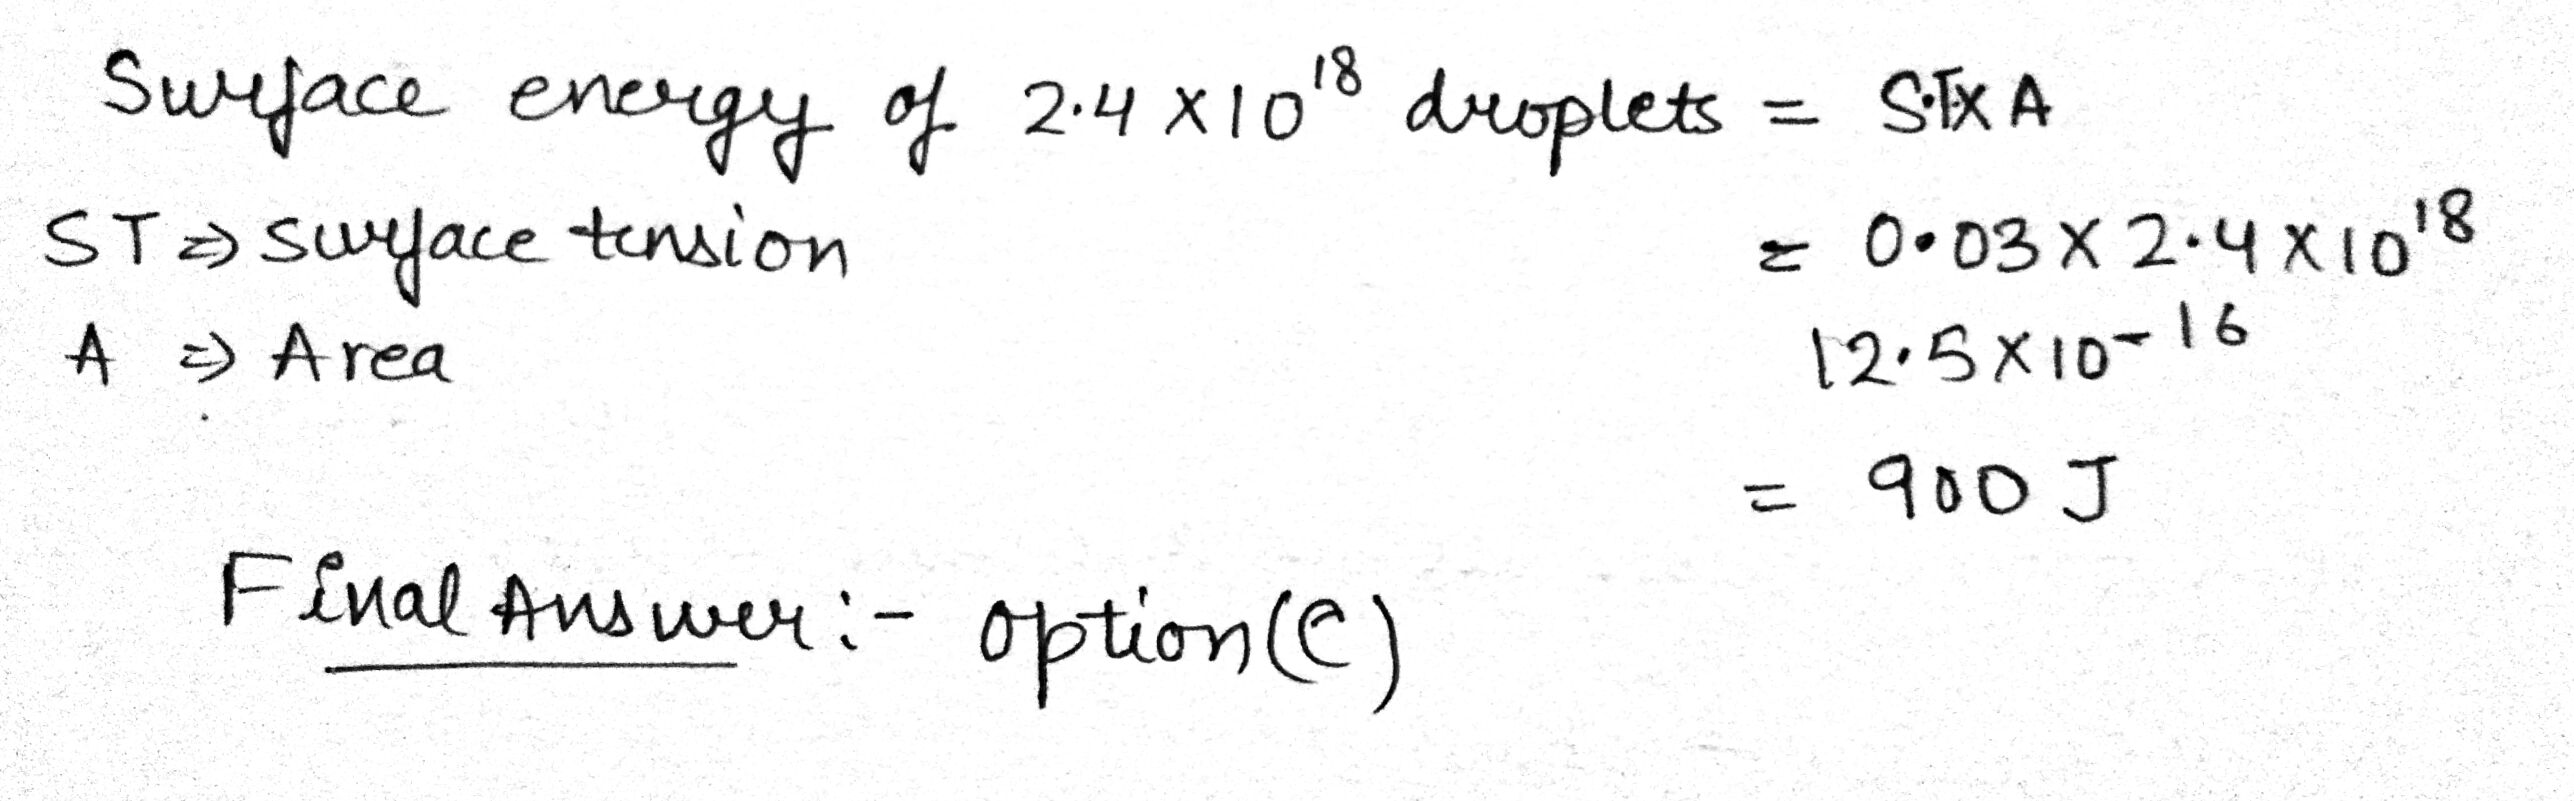 Surface energy of 2.4 × 10¹⁸ droplets = S.T× A
ST ⇒ surface tension = 0.03 × 2.4 × 10¹⁸
A ⇒ Area 12.5 × 10⁻¹⁶
= 900 J
Final Answer :- option (C)